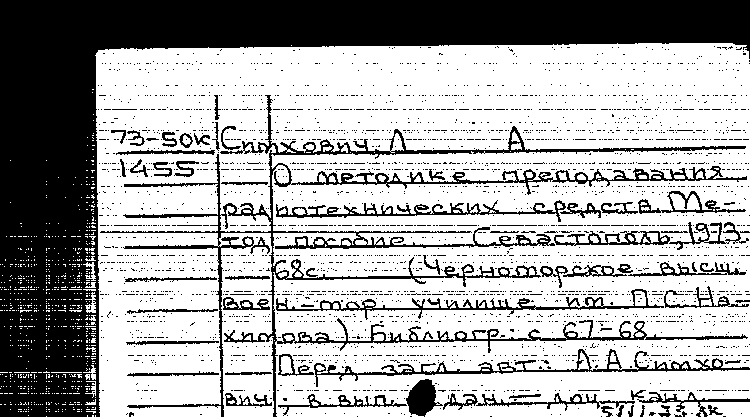 73-50к Ситхович, Л А
1455
О методике преподавания
радиотехнических средств. Ме-
тод. пособие. Севастополь, 1973.
68с. (Черноморское высш.
воен.-мор. училище им. П.С. На-
химова). Библиогр.: с 67-68.
Перед загл. авт.: А.А. Ситхо-
вич; в вып. дан. — доц. канд.